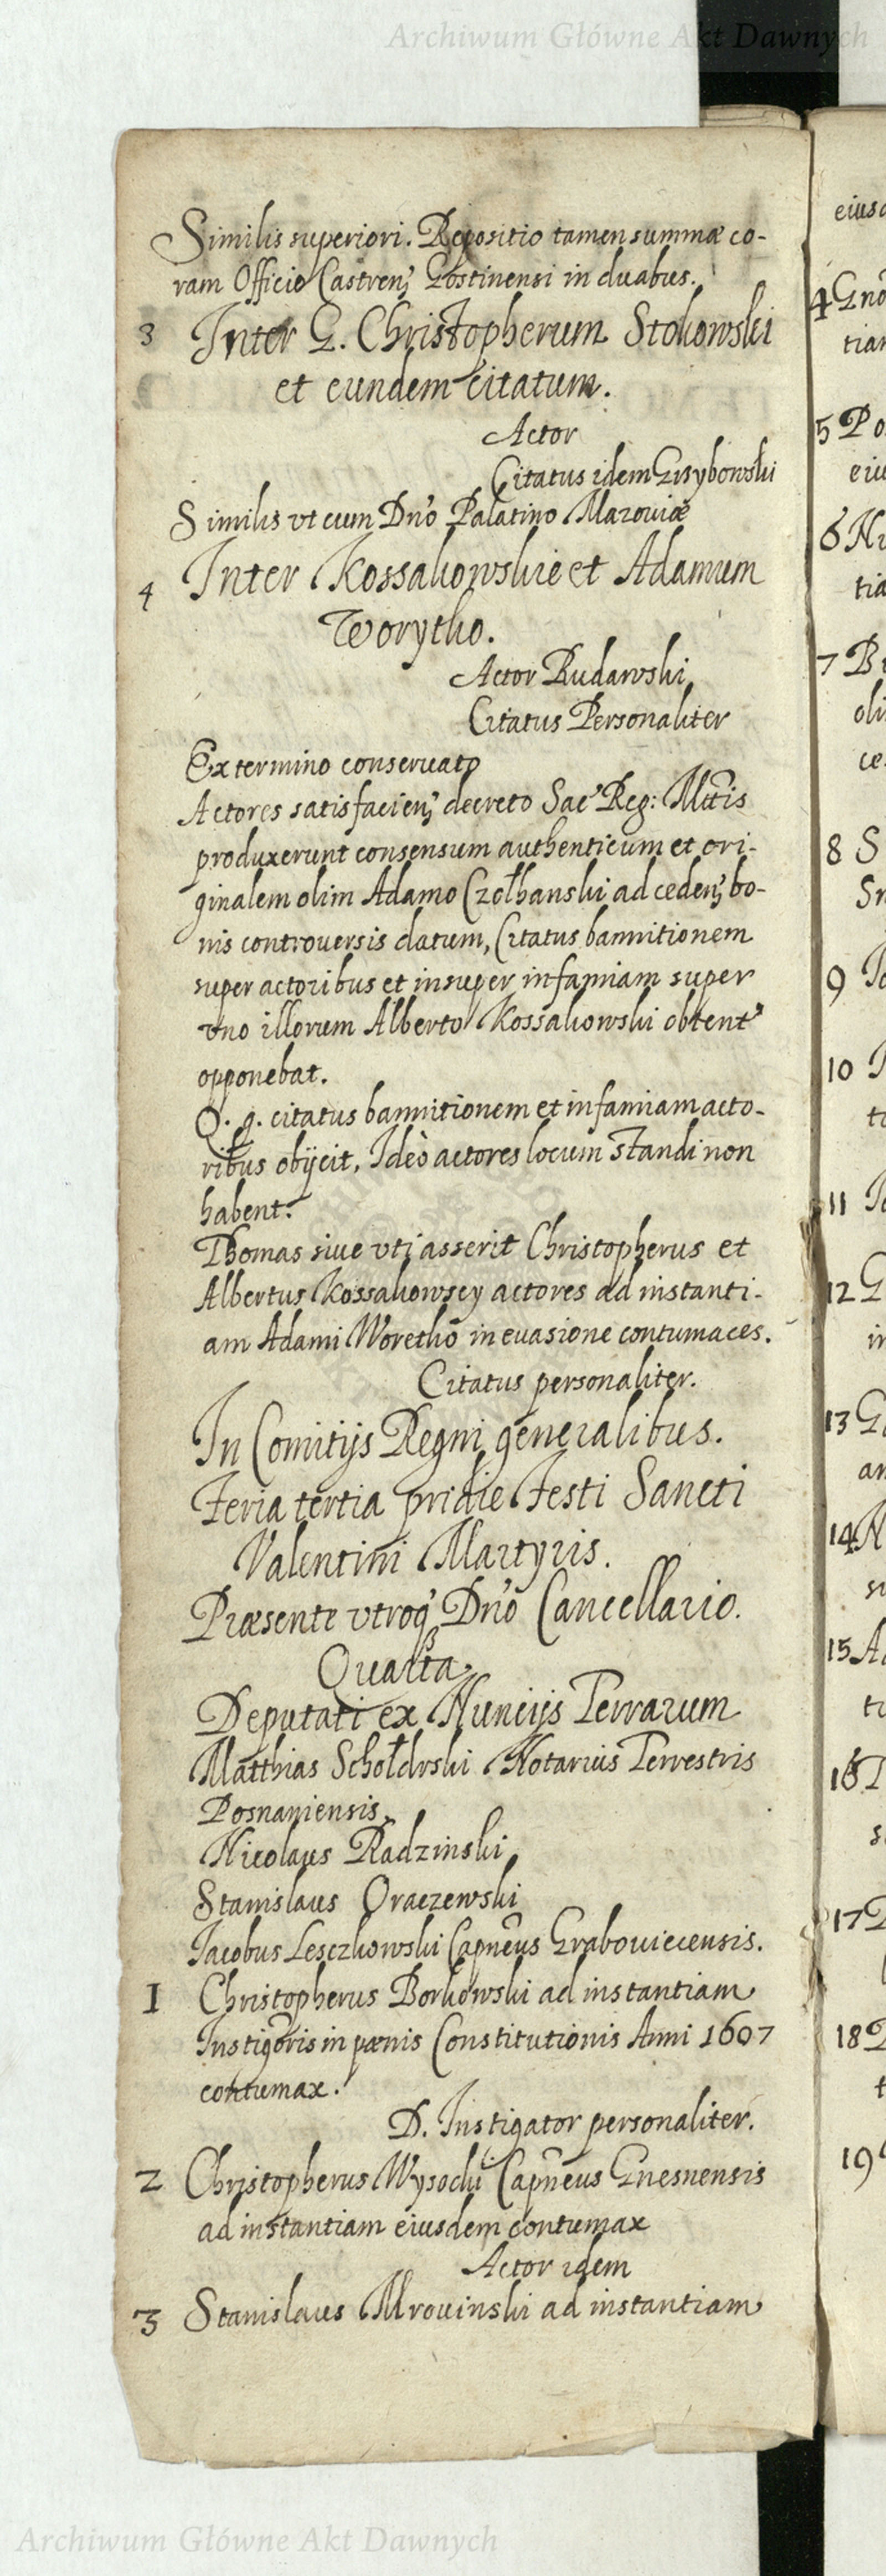 Archiwum Główne Akt Dawnych
Similis superiori. Repositio tamen summæ co-
ram Officio Castren; Gostinensi in duabus.
3 Inter G. Christopherum Stokowski
et eundem citatum.
Actor
Citatus idem Grzybowski
Similis vt cum Dn̄o Palatino Mazouiæ
4 Inter Kossakowskie et Adamum
Worytko.
Actor Rudawski
Citatus Personaliter
Ex termino conseruato
Actores satisfacien; decreto Sac Reg: Mt̄is
produxerunt consensum authenticum et ori-
ginalem olim Adamo Czołhanski ad ceden; bo-
nis controuersis datum, Citatus bannitionem
super actoribus et insuper infamiam super
vno illorum Alberto Kossakowski obtent
opponebat.
Q. q. citatus bannitionem et infamiam acto-
ribus obijcit, Ideò actores locum standi non
habent.
Thomas siue vti asserit Christopherus et
Albertus Kossakowscy actores ad instanti-
am Adami Woretko in euasione contumaces.
Citatus personaliter.
In Comitijs Regni generalibus.
Feria tertia pridie Festi Sancti
Valentini Martyris.
Præsente vtroq; Dn̄o Cancellario.
Quarta
Deputati ex Nuncijs Terrarum
Matthias Schołdrski Notarius Terrestris
Posnaniensis
Nicolaus Radzinski
Stanislaus Oraczewski
Jacobus Lesczkowski Capn̄eus Grabouiecensis.
1 Christopherus Borkowski ad instantiam
Instigōris in pænis Constitutionis Anni 1607
contumax.
D. Instigator personaliter.
2 Christopherus Wysocki Capn̄eus Gnesnensis
ad instantiam eiusdem contumax
Actor idem
3 Stanislaus Mrouinski ad instantiam
4
5
6
7
8
9
10
11
12
13
14
15
16
17
18
19
Archiwum Główne Akt Dawnych